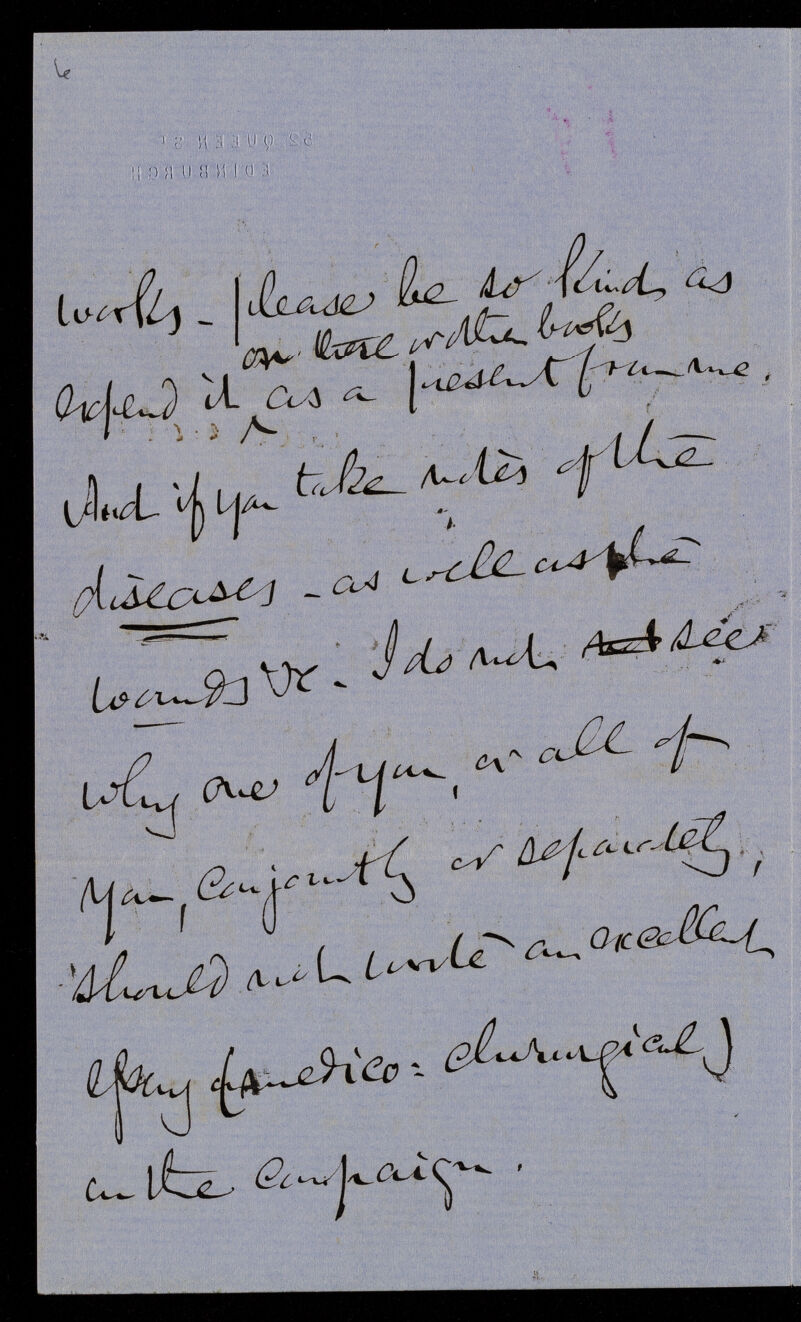 6
52 QUEEN ST
EDINBURGH
works - please be so kind as
on these or other books
expend it ^ as a present from me.
And if you take notes of the
diseases - as well as the
wounds &c - I do not see
why one of you, or all of
you, conjointly or separately,
should not write an excellent
Essay (medico=chirurgical)
on the campaign.